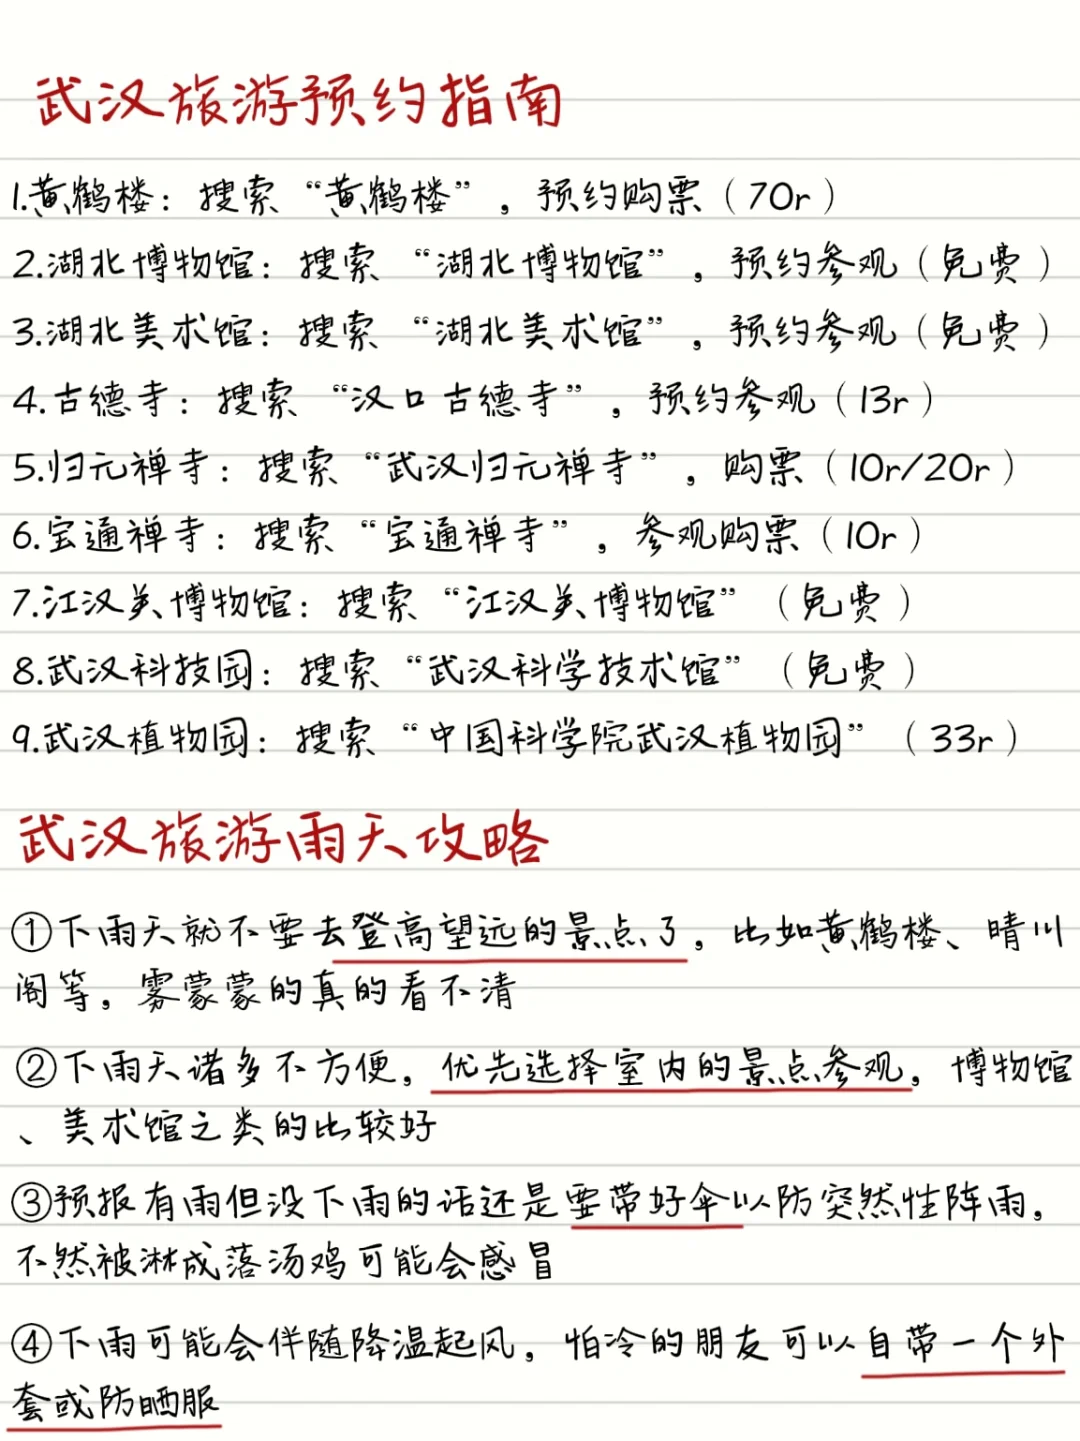 武汉旅游预约指南
1.黄鹤楼：搜索“黄鹤楼”，预约购票（70r）
2.湖北博物馆：搜索“湖北博物馆”，预约参观（免费）
3.湖北美术馆：搜索“湖北美术馆”，预约参观（免费）
4.古德寺：搜索“汉口古德寺”，预约参观（13r）
5.归元禅寺：搜索“武汉归元禅寺”，购票（10r/20r）
6.宝通禅寺：搜索“宝通禅寺”，参观购票（10r）
7.江汉关博物馆：搜索“江汉关博物馆”（免费）
8.武汉科技园：搜索“武汉科学技术馆”（免费）
9.武汉植物园：搜索“中国科学院武汉植物园”（33r）
武汉旅游雨天攻略
①下雨天就不要去登高望远的景点了，比如黄鹤楼、晴川
阁等，雾蒙蒙的真的看不清
②下雨天诸多不方便，优先选择室内的景点参观，博物馆
、美术馆之类的比较好
③预报有雨但没下雨的话还是要带好伞以防突然性阵雨，
不然被淋成落汤鸡可能会感冒
④下雨可能会伴随降温起风，怕冷的朋友可以自带一个外
套或防晒服